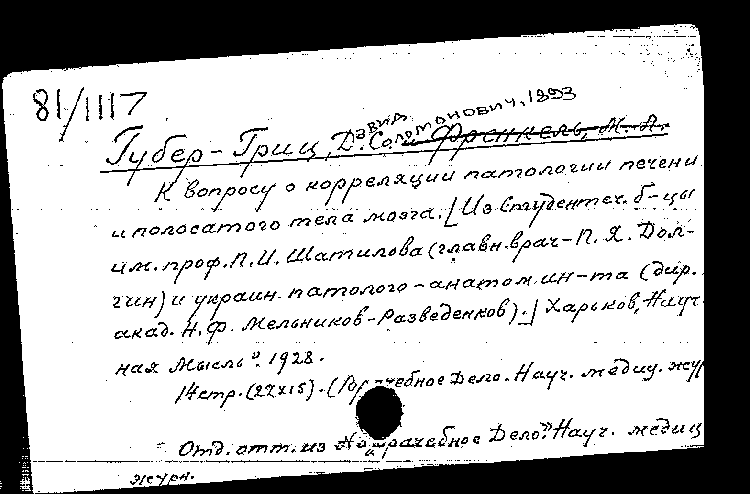 81/1117
Губер-Гриц, Давид Соломонович, 1893 и Френкель, М. Л.
К вопросу о корреляции патологии печени
и полосатого тела мозга. [Из Студенческ. б-цы
им. проф. П. И. Шатилова (главн. врач - П. Я. Дол-
гин) и украин. патолого-анатом. ин-та (дир.
акад. Н. Ф. Мельников-Разведенков).] Харьков, Науч-
ная Мысль". 1928.
14 стр. (22x15). (Врачебное Дело. Науч. медиц. жур
Отд. отт. из "Врачебное Дело". Науч. медиц
журн.